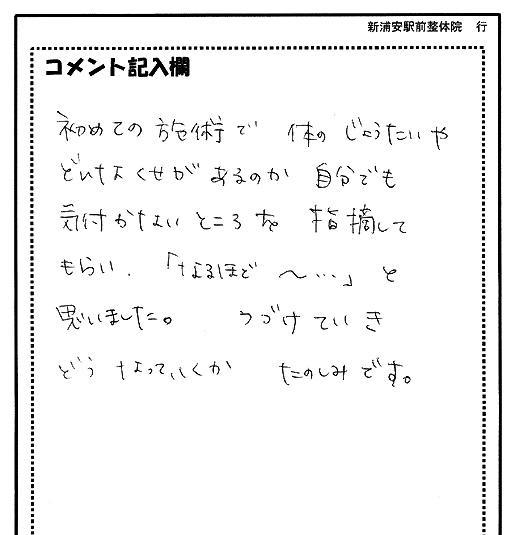 新浦安駅前整体院 行
コメント記入欄
初めての施術で 体の じょうたいや
どんなくせが あるのか 自分でも
気付かないところを 指摘して
もらい、「なるほど 〜…」と
思いました。 つづけていき
どう なっていくか たのしみです。